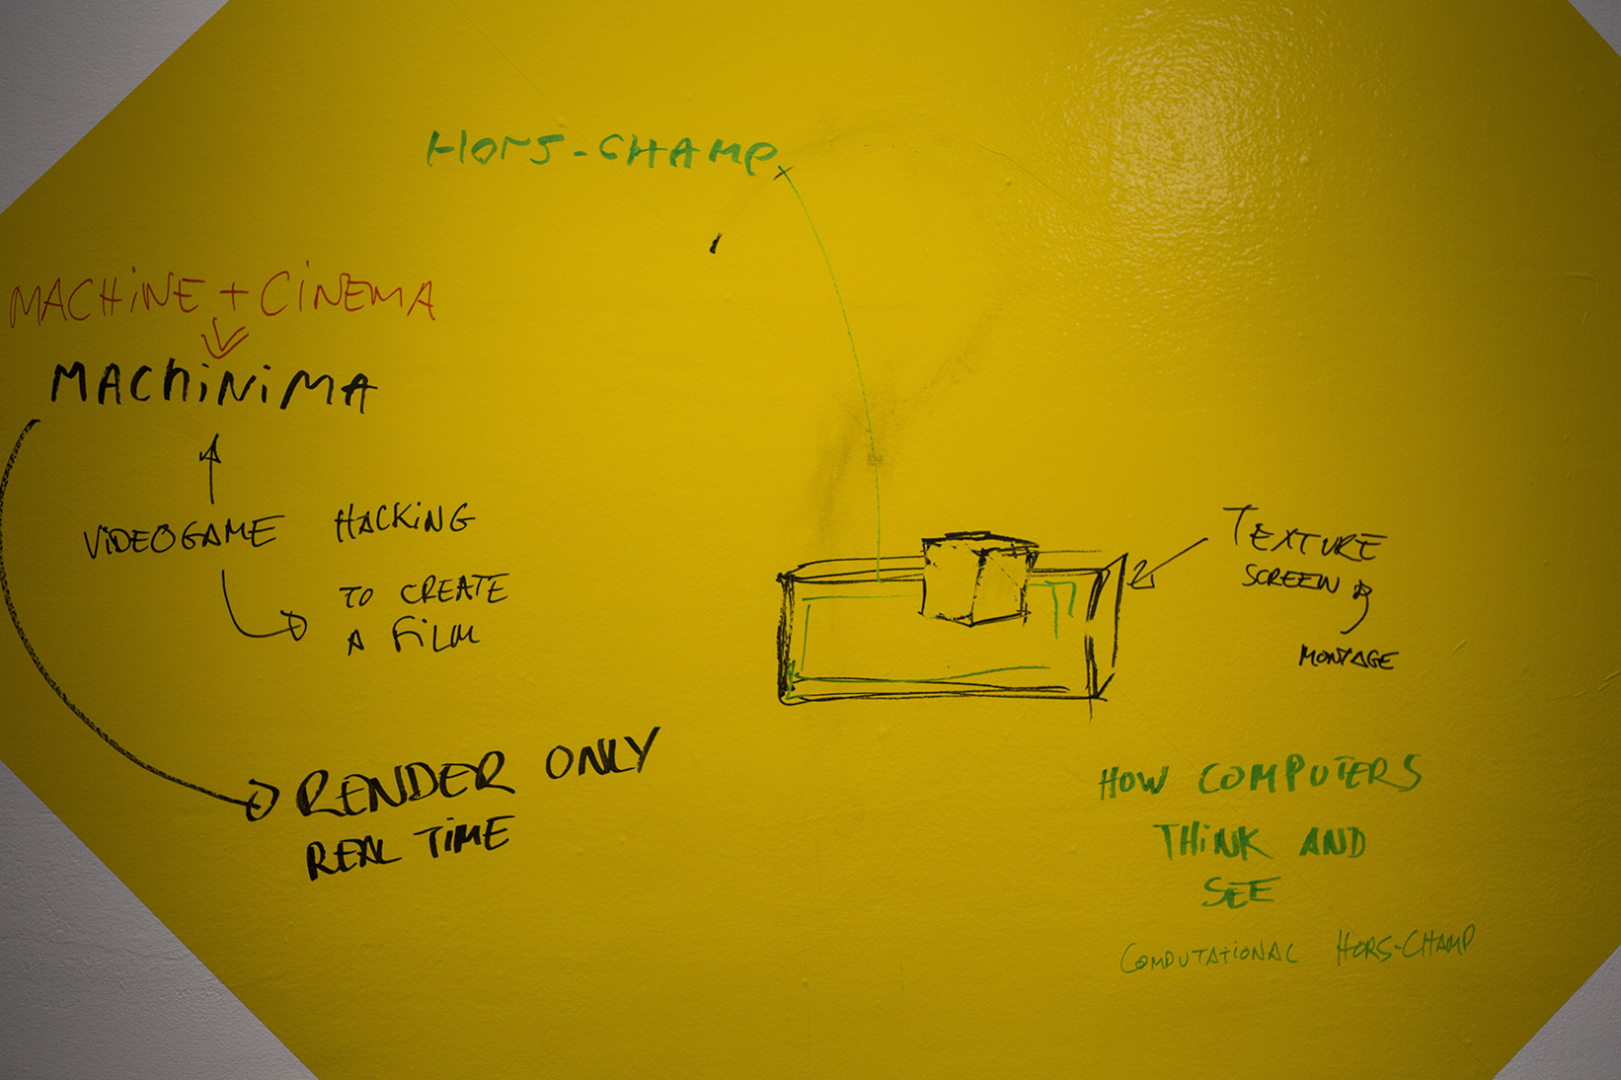 HORS-CHAMP
MACHINE + CINEMA
MACHINIMA
VIDEOGAME HACKING
TO CREATE
A FILM
RENDER ONLY
REAL TIME
TEXTURE
SCREEN
MONTAGE
HOW COMPUTERS
THINK AND
SEE
COMPUTATIONAL HORS-CHAMP